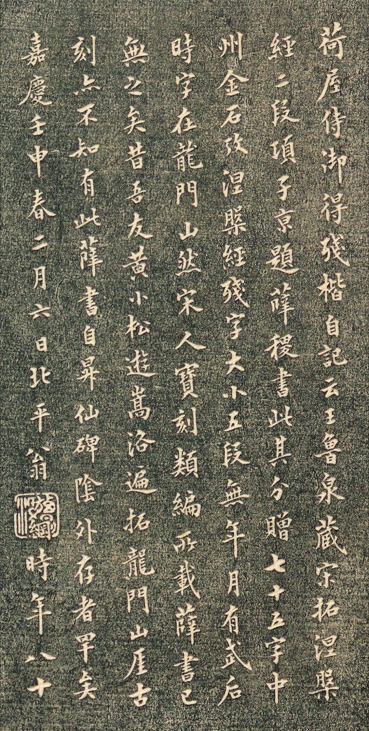 荷屋侍御得殘楷自記云王魯泉藏宋拓涅槃
經二段項子京題薛稷書此其分贈七十五字中
州金石攷涅槃經殘字大小五段無年月有武后
時字在龍門山然宋人寶刻類編所載薛書已
無之矣昔吾友黃小松遊嵩洛遍拓龍門山厓古
刻亦不知有此薛書自昇仙碑陰外存者罕矣
嘉慶壬申春二月六日北平翁
方綱
時年八十